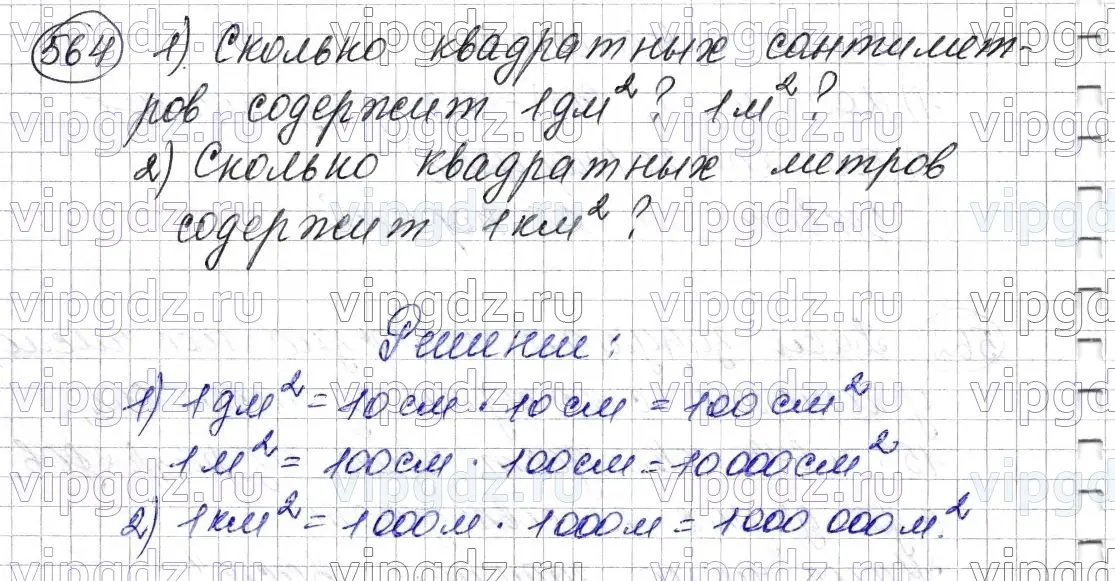 564 1) Сколько квадратных сантимет-
ров содержит 1 дм²? 1 м²?
2) Сколько квадратных метров
содержит 1 км²?
Решение:
1) 1 дм² = 10 см · 10 см = 100 см²
1 м² = 100 см · 100 см = 10 000 см²
2) 1 км² = 1000 м · 1000 м = 1000 000 м.²